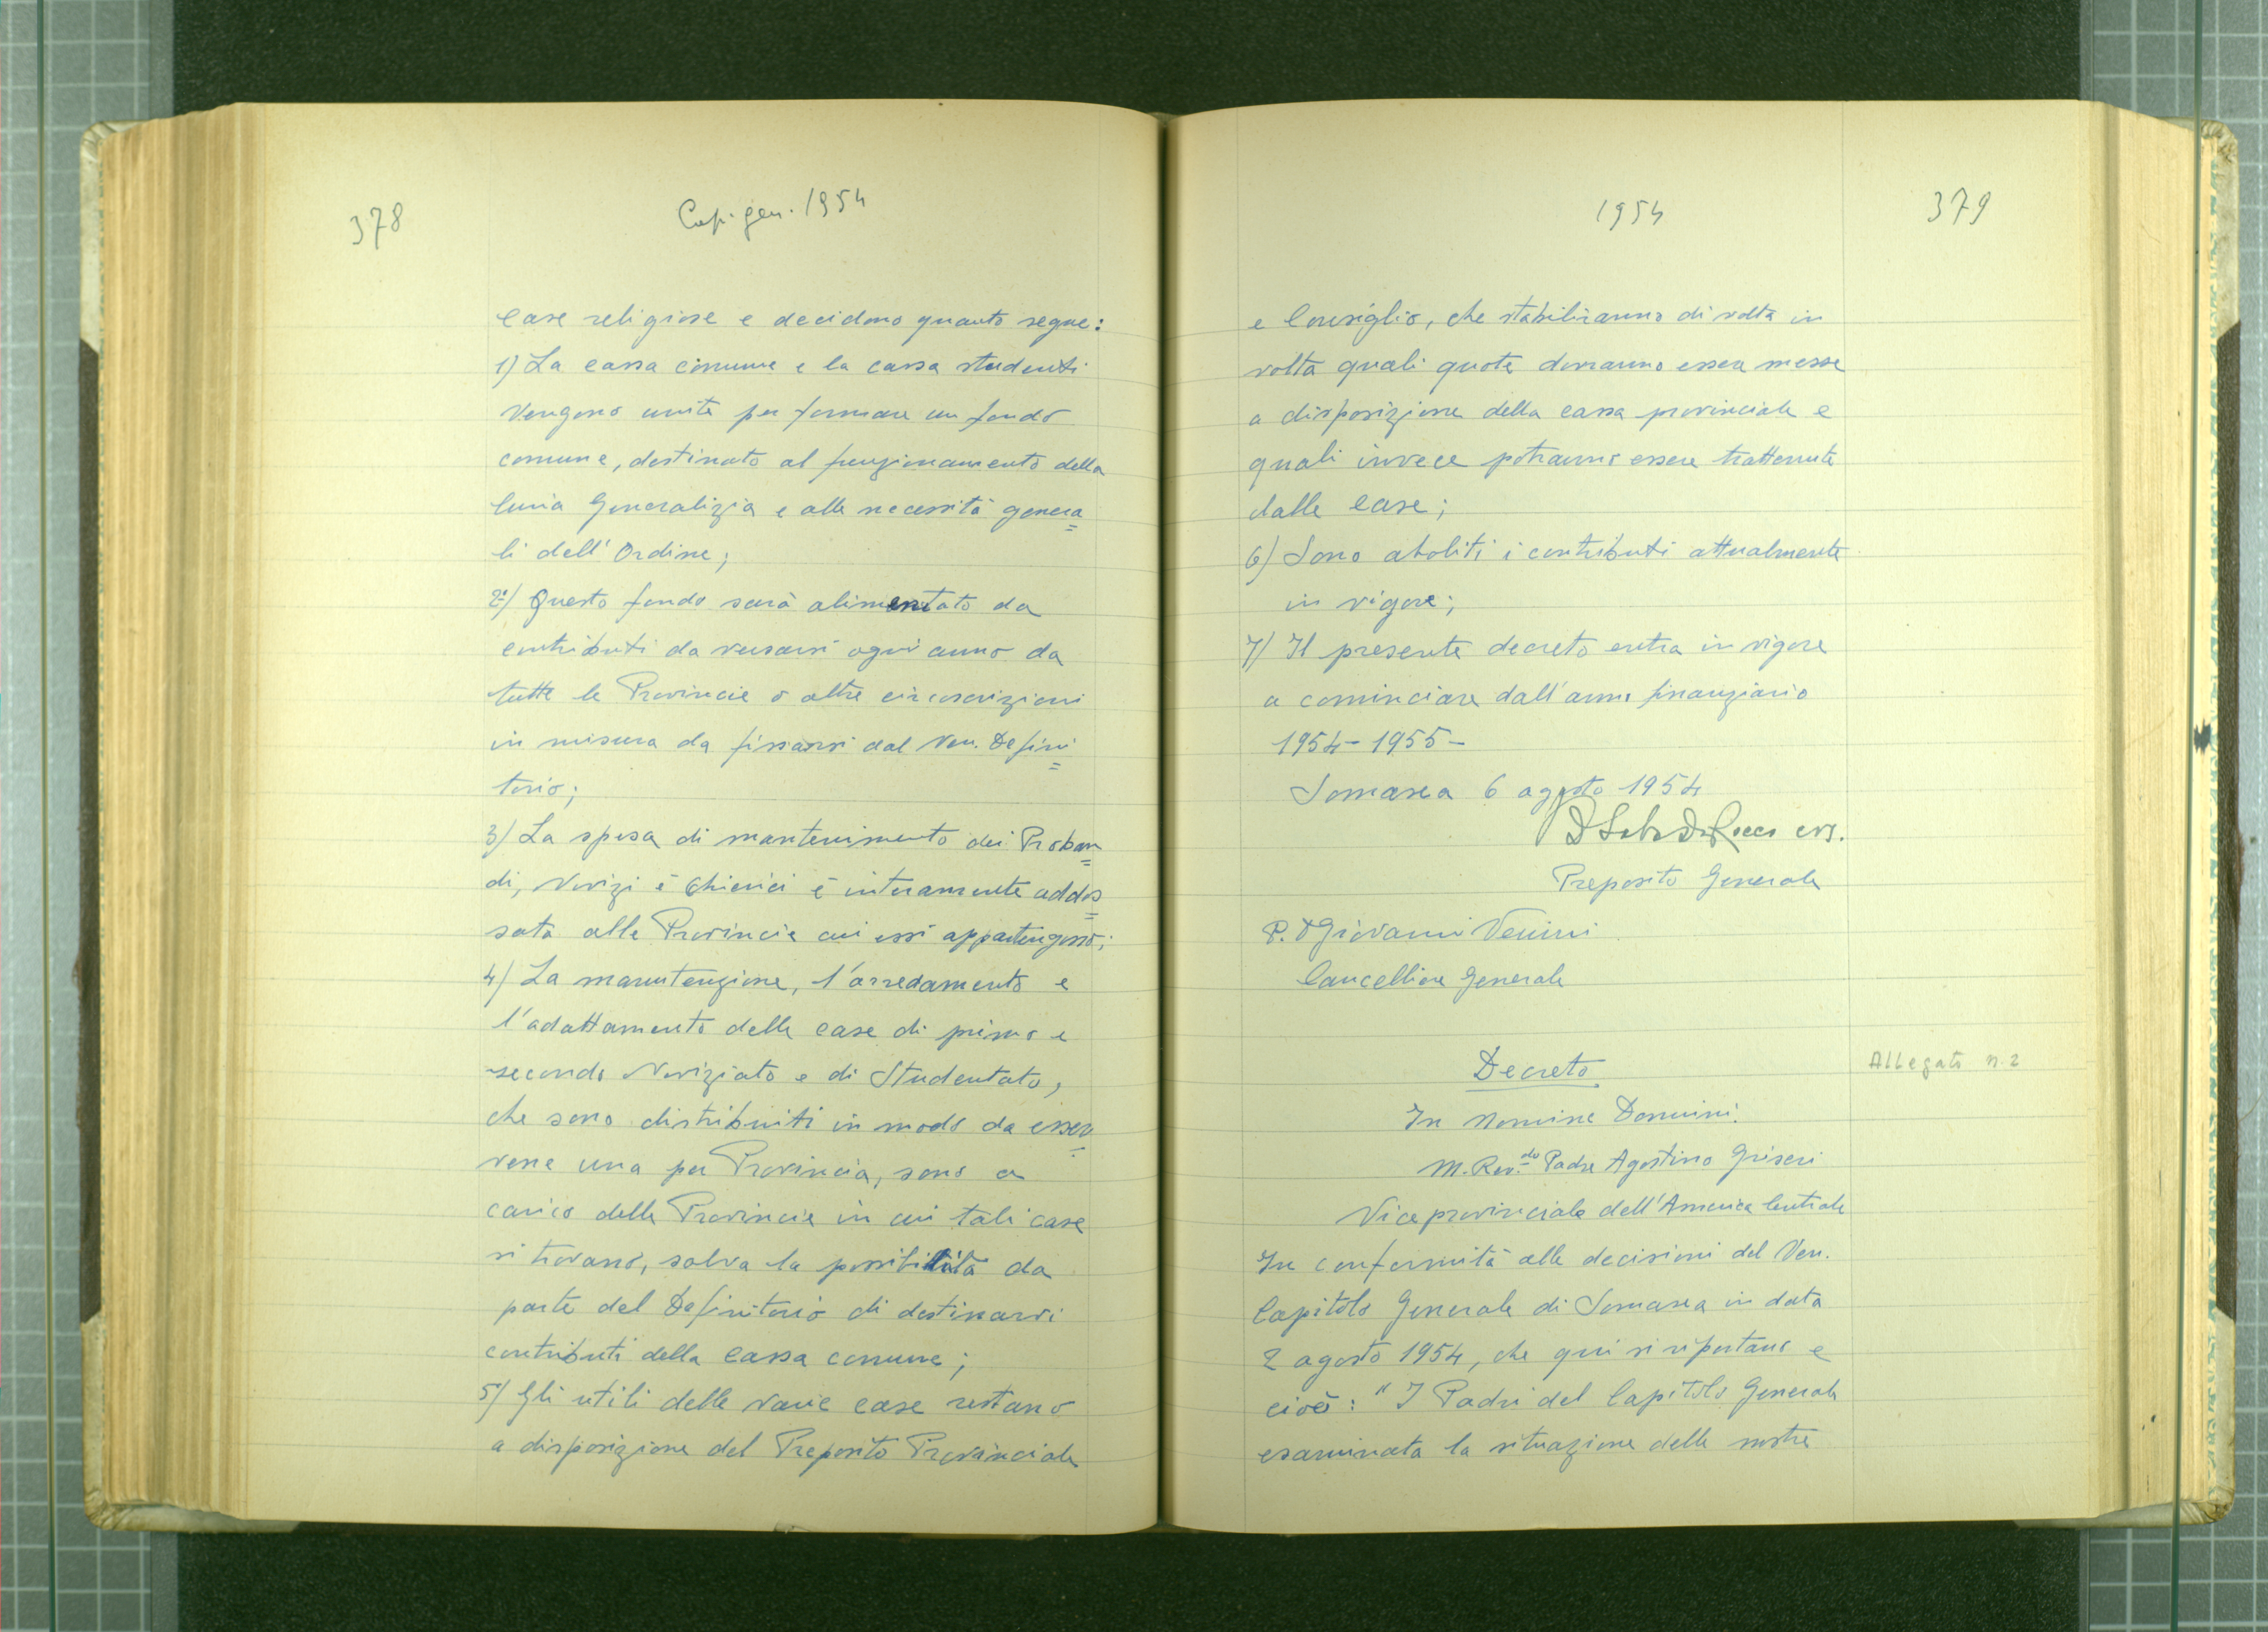 378
Cap. gen. 1954
Case religiose e decidono quanto segue:
1) La cassa comune e la cassa studenti
vengono unite per formare un fondo
comune, destinato al funzionamento della
Curia Generalizia e alle necessità genera=
li dell'Ordine;
2º) Questo fondo sarà alimentato da
contributi da versarsi ogni anno da
tutte le Provincie o altre circoscrizioni
in misura da fissarsi dal Ven. Defini=
torio;
3) La spesa di mantenimento dei Proban=
di, Novizi e Chierici è interamente addos=
sata alle Provincie cui essi appartengono;
4) La manutenzione, l'arredamento e
l'adattamento delle case di primo e
secondo Noviziato e di Studentato,
che sono distribuiti in modo da esser=
vene una per Provincia, sono a
carico delle Provincie in cui tali case
si trovano, salva la possibilità da
parte del Definitorio di destinarvi
contributi della cassa comune;
5) Gli utili delle varie case restano
a disposizione del Preposito Provinciale
1954
379
e Consiglio, che stabiliranno di volta in
volta quali quote dovranno essere messe
a disposizione della cassa provinciale e
quali invece potranno essere trattenute
dalle case;
6) Sono aboliti i contributi attualmente
in vigore;
7) Il presente decreto entra in vigore
a cominciare dall'anno finanziario
1954-1955-
Somasca 6 agosto 1954
De Rocco crs.
Preposito Generale
P. D Giovanni Venini
Cancelliere Generale
Decreto
Allegato n. 2
In Nomine Domini.
M. Rev.do Padre Agostino Griseri
Viceprovinciale dell'America Centrale
In conformità alle decisioni del Ven.
Capitolo Generale di Somasca in data
2 agosto 1954, che qui si riportano e
cioè: "I Padri del Capitolo Generale
esaminata la situazione delle nostre